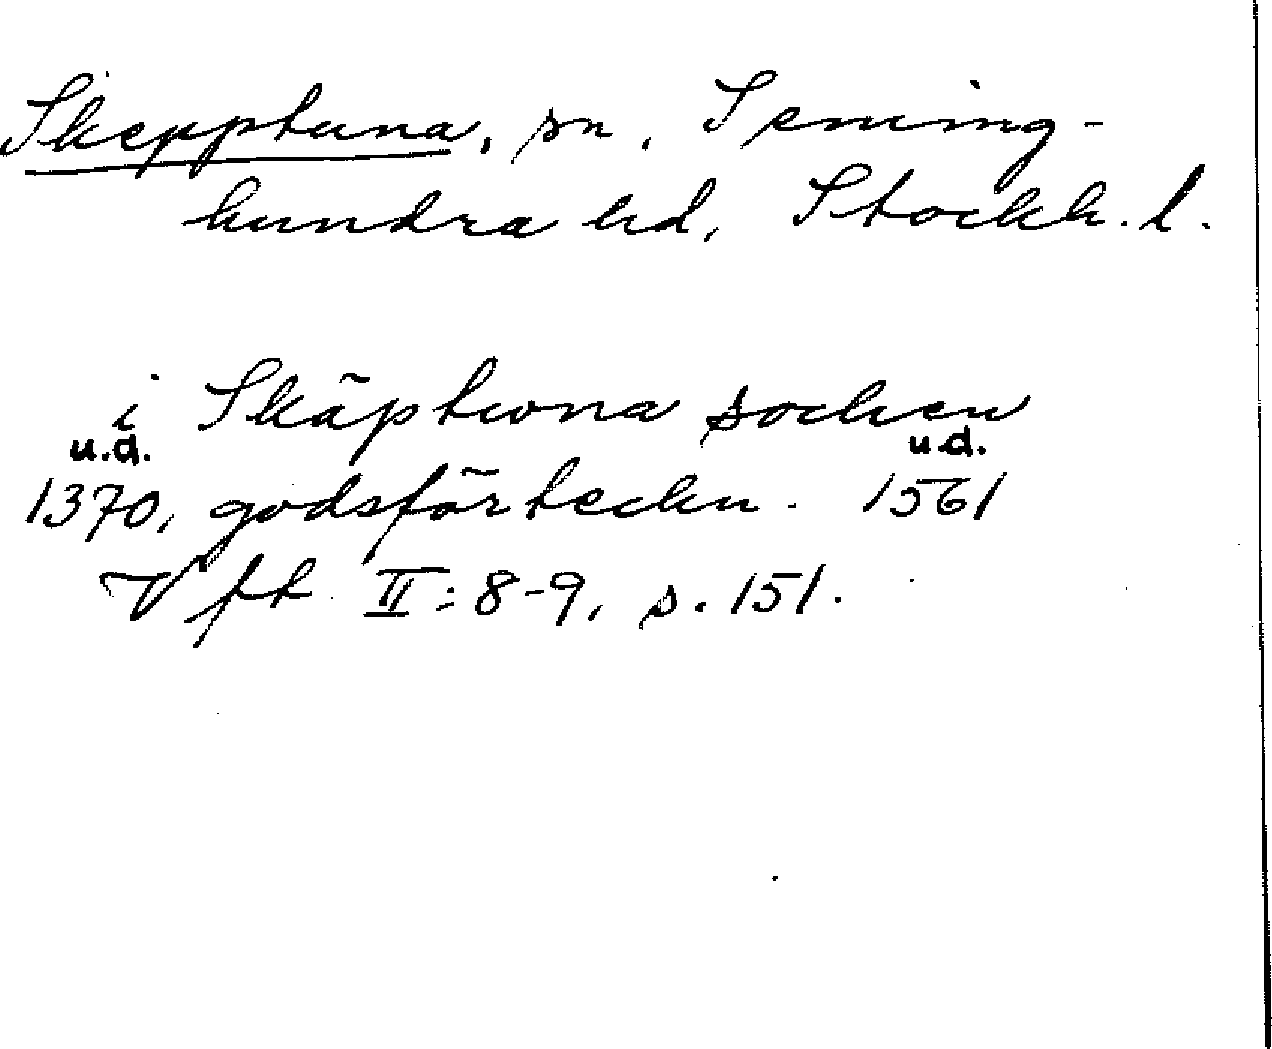 Skepptuna, sn, Seming-
hundra hd, Stockh. l.
i Skäptwna sochen
u.d. u.d.
1370, godsförteckn. 1561
Vfk II:8-9, s. 151.